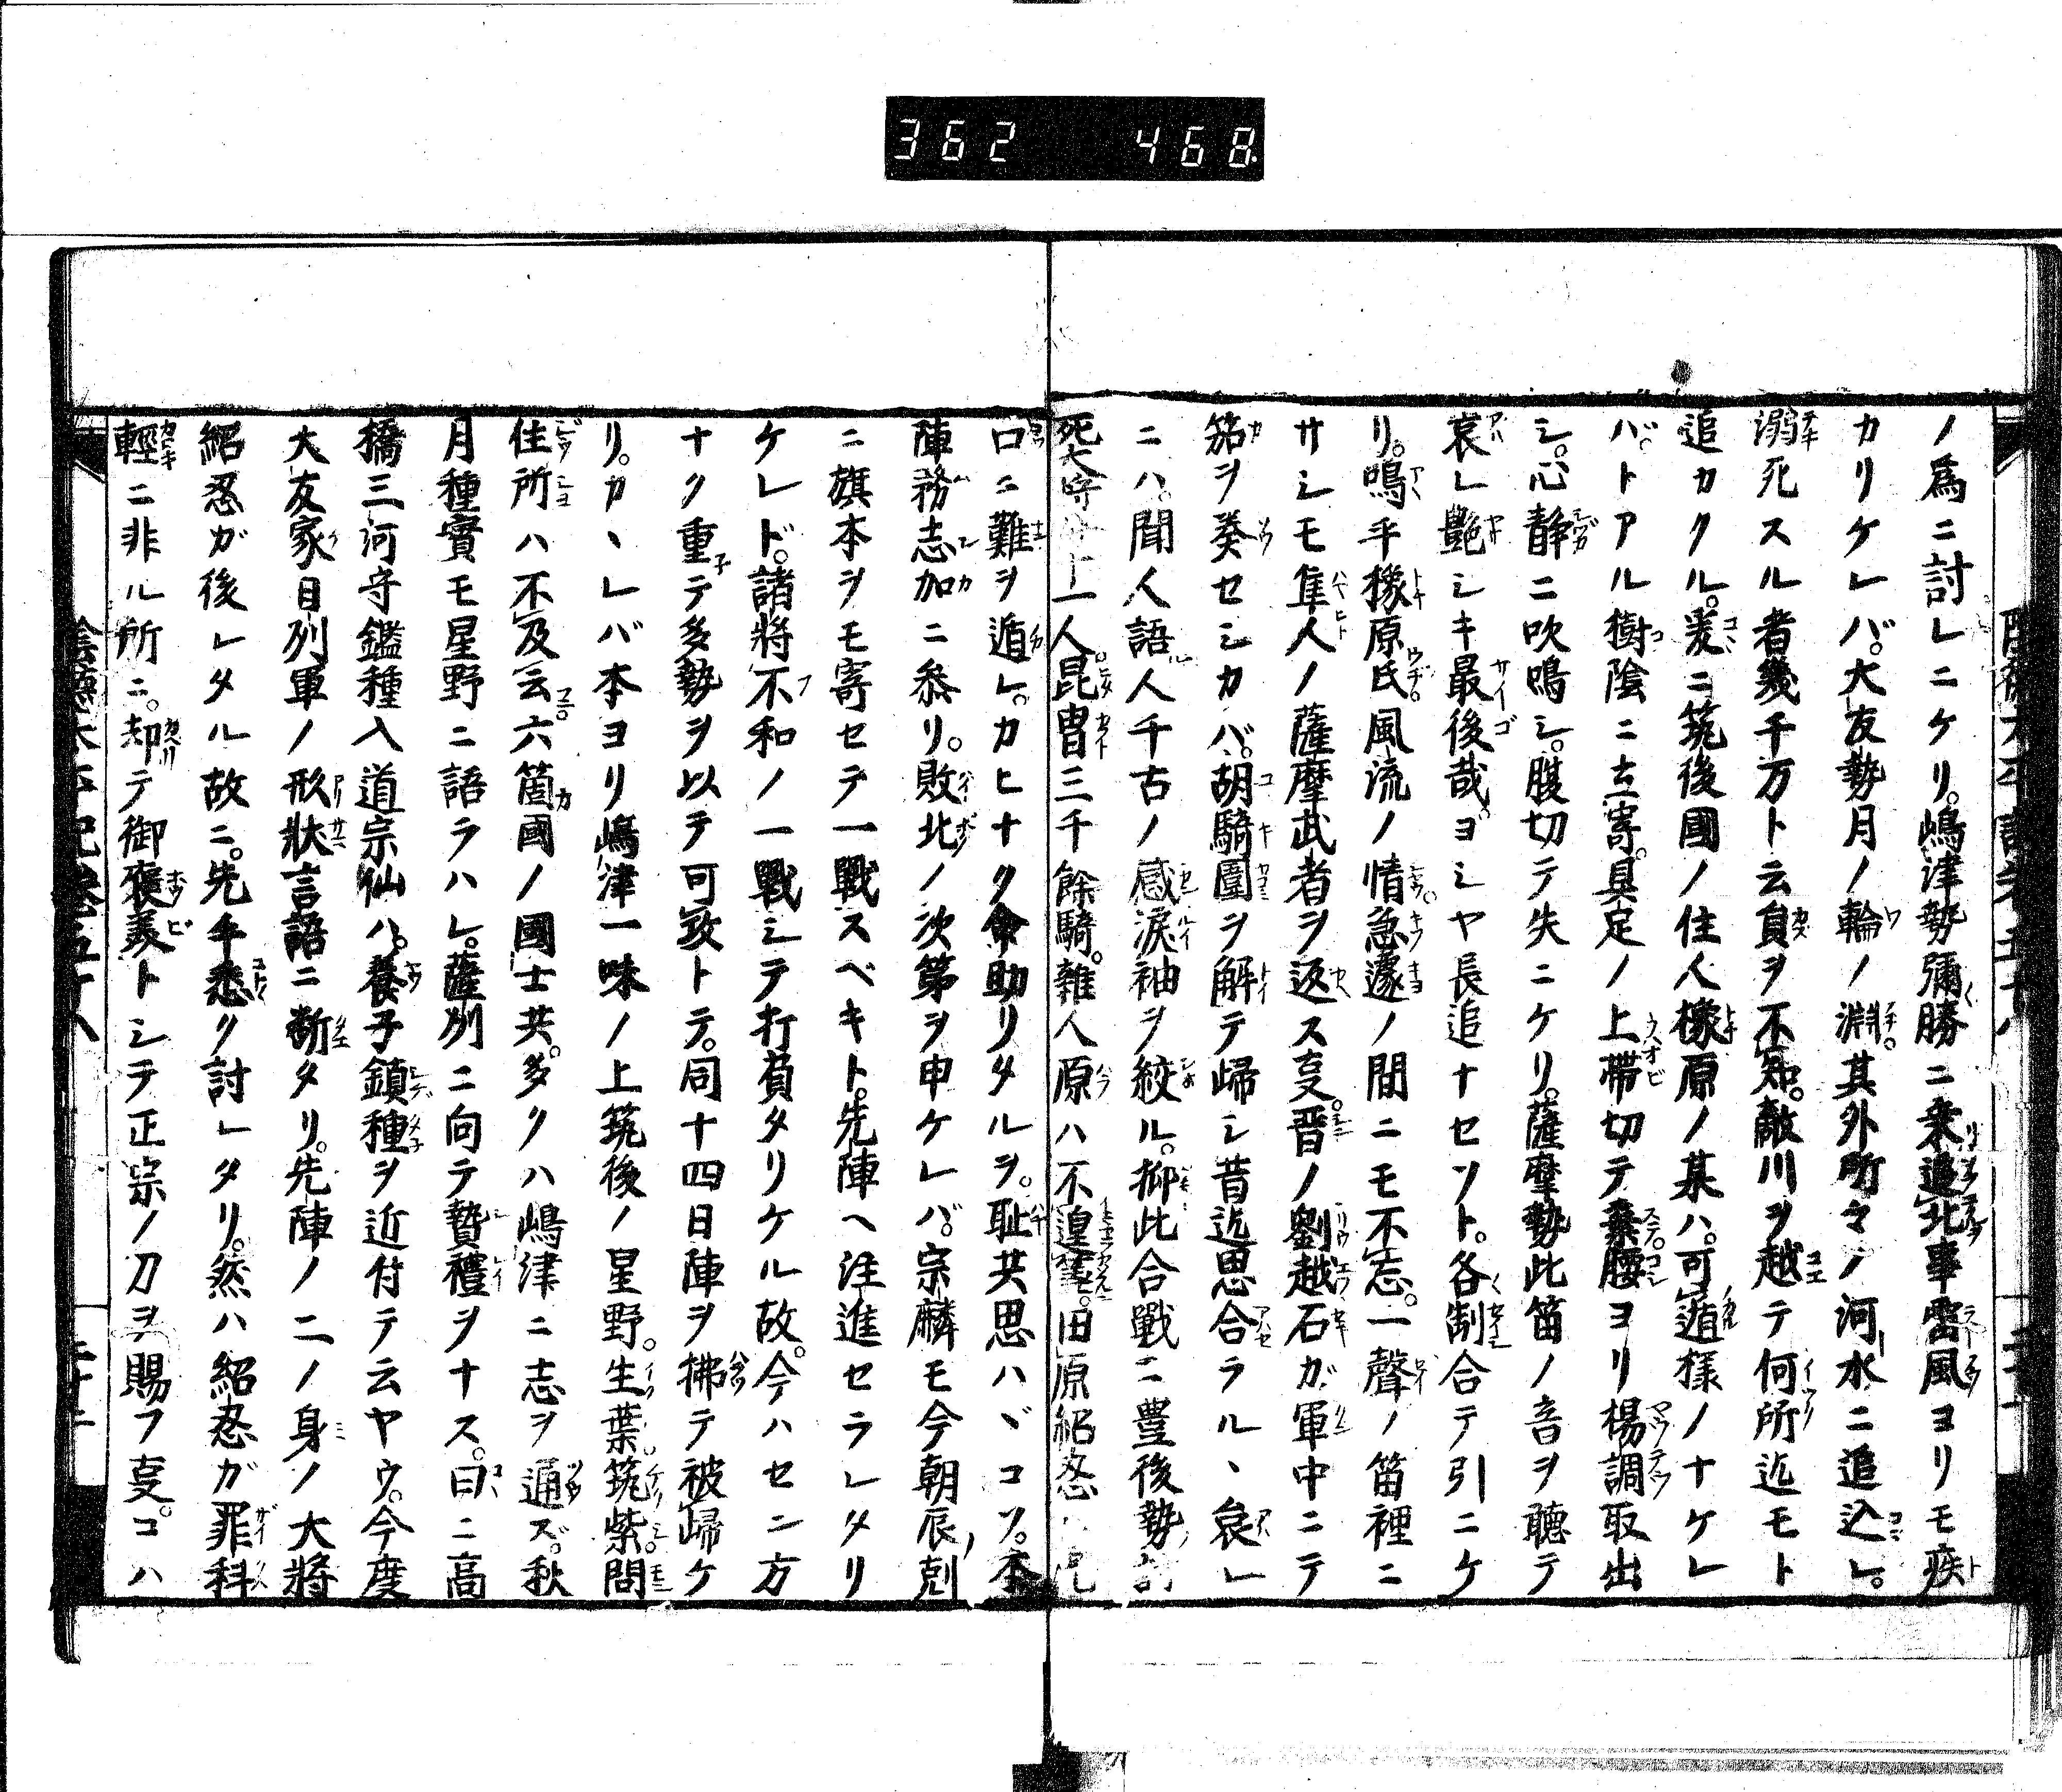 362 468
ノ爲ニ討レニケリ。嶋津勢彌勝ニ乗追北事雷風ヨリモ疾
カリケレバ。大友勢月ノ輪ノ淵。其外所々ノ河水ニ追込レ。
溺死スル者幾千万ト云負ヲ不知。敵川ヲ越テ何所迄モト
追カクル。爰ニ筑後國ノ住人橡原ノ某ハ。可遁様ノナケレ
バ。トアル樹陰ニ立寄。具足ノ上帯切テ棄。腰ヨリ楊調取出
シ。心静ニ吹鳴シ。腹切テ失ニケリ。薩摩勢此笛ノ音ヲ聴テ
哀レ艶シキ最後哉。ヨシヤ長追ナセソト。各制合テ引ニケ
リ。鳴乎橡原氏。風流ノ情。急遽ノ間ニモ不忘。一聲ノ笛裡ニ
サシモ隼人ノ薩摩武者ヲ返ス叓。晋ノ劉越石ガ軍中ニテ
笳ヲ奏セシカバ。胡騎圍ヲ解テ帰シ昔迄思合ラル丶哀レ
ニハ。聞人語人千古ノ感涙袖ヲ絞ル。抑此合戰ニ豊後勢
死 上一人。昆冑三千餘騎。雜人原ハ不遑筭。田原紹忍
口ニ難ヲ遁レ。カヒナク命助リタルヲ。恥共思ハヾコソ。本
陣務志加ニ叅リ。敗北ノ次第ヲ申ケレバ。宗麟モ今朝辰ノ剋
ニ旗本ヲモ寄セテ一戰スベキト。先陣ヘ注進セラレタリ
ケレド。諸將不和ノ一戰シテ打負タリケル故。今ハセン方
ナク重テ多勢ヲ以テ可致トテ。同十四日陣ヲ拂テ被帰ケ
リ。カヽレバ本ヨリ嶋津一味ノ上筑後ノ星野。生葉。筑紫。問
住所ハ不及云。六箇國ノ國士共。多クハ嶋津ニ志ヲ通ズ。秋
月種實モ星野ニ語ラハレ。薩州ニ向テ贄禮ヲナス。曰ニ高
橋三河守鑑種入道宗仙ハ。養子鎮種ヲ近付テ云ヤウ。今度
大友家日州軍ノ形狀言語ニ断タリ。先陣ノ二ノ身ノ大將
紹忍ガ後レタル故ニ。先手悉ク討レタリ。然ハ紹忍ガ罪科
輕ニ非ル所ニ。却テ御褒美トシテ正宗ノ刀ヲ賜フ叓。コハ